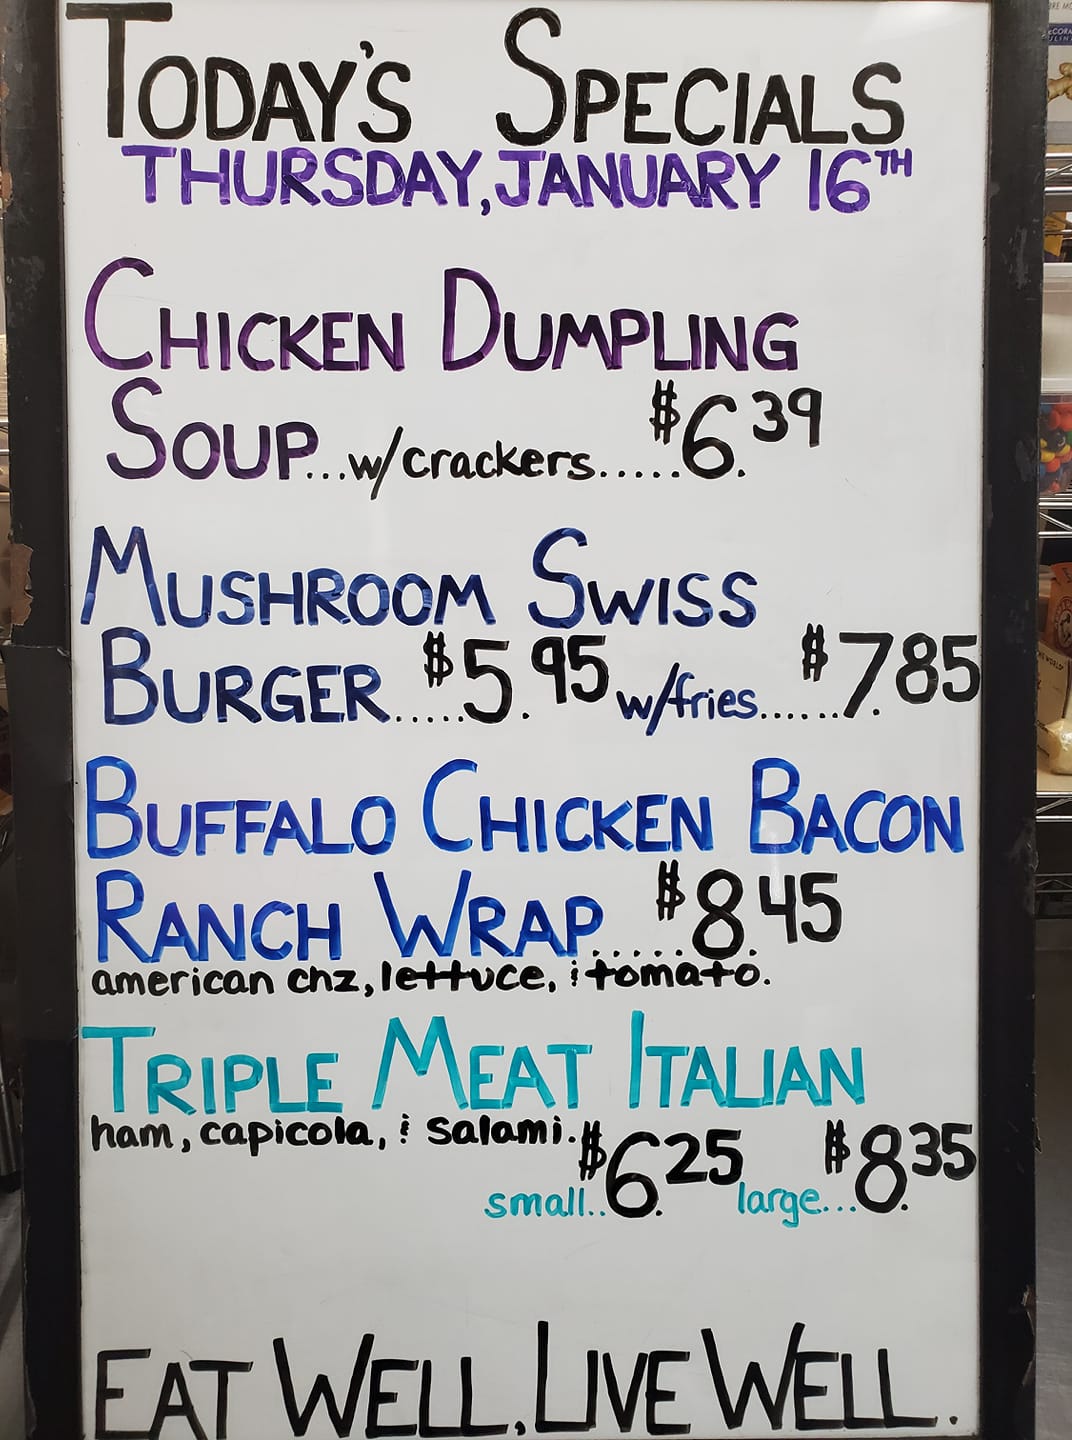 TODAY'S SPECIALS
THURSDAY, JANUARY 16TH
CHICKEN DUMPLING
SOUP...w/crackers.....$6.39
MUSHROOM SWISS
BURGER.....$5.95 w/fries......$7.85
BUFFALO CHICKEN BACON
RANCH WRAP.....$8.45
american chz, lettuce, & tomato.
TRIPLE MEAT ITALIAN
ham, capicola, & salami.
small..$6.25 large...$8.35
EAT WELL, LIVE WELL.